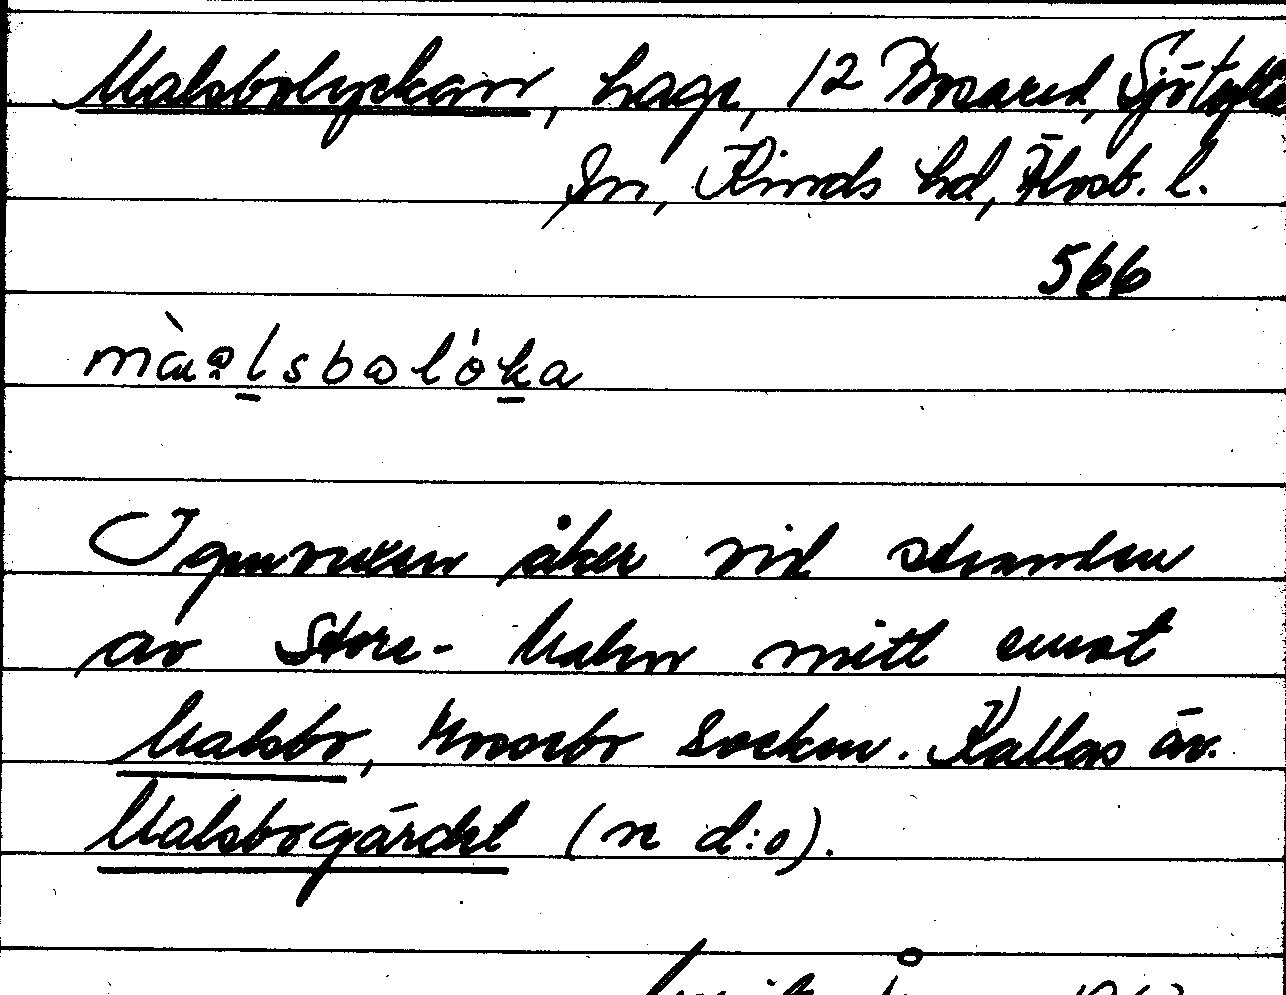 Malsbolyckan, hage, 12 Bosared, Sjötofta
sn, Kinds hd, Älvsb. l.
566
Igenvuxen åker vid stranden
av Store-Malen mitt emot
Malsbo, Mossebo socken. Kallas äv.
Malsbogärdet (n d:o).